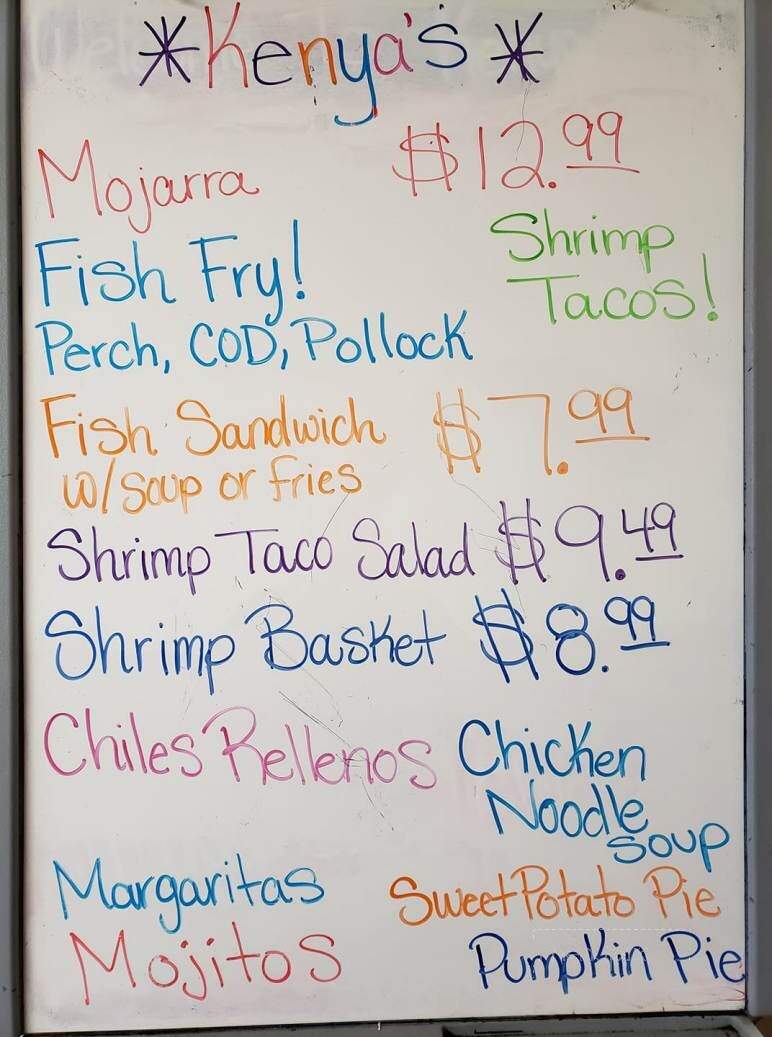 *Kenya's*
Mojarra $12.99
Fish Fry!
Shrimp
Tacos!
Perch, COD, Pollock
Fish Sandwich $7.99
w/soup or fries
Shrimp Taco Salad $9.49
Shrimp Basket $8.99
Chiles Rellenos
Chicken
Noodle
soup
Margaritas
Sweet Potato Pie
Mojitos
Pumpkin Pie